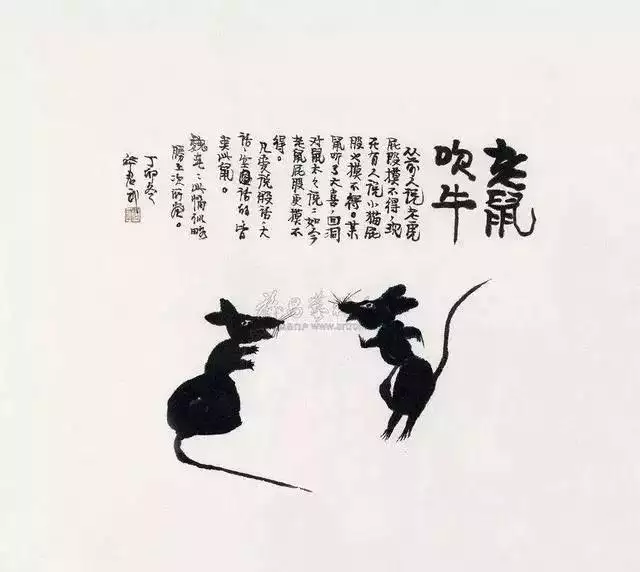 老鼠
吹牛
从前人说老虎
屁股摸不得,现
在有人说小猫屁
股也摸不得。某
鼠听了大喜,回洞
对鼠太太说:如今
老鼠屁股更摸不
得。
凡爱说假话、大
话、空话的,皆
类此鼠。
此幅似略
胜上次所画。
丁卯冬
华君武